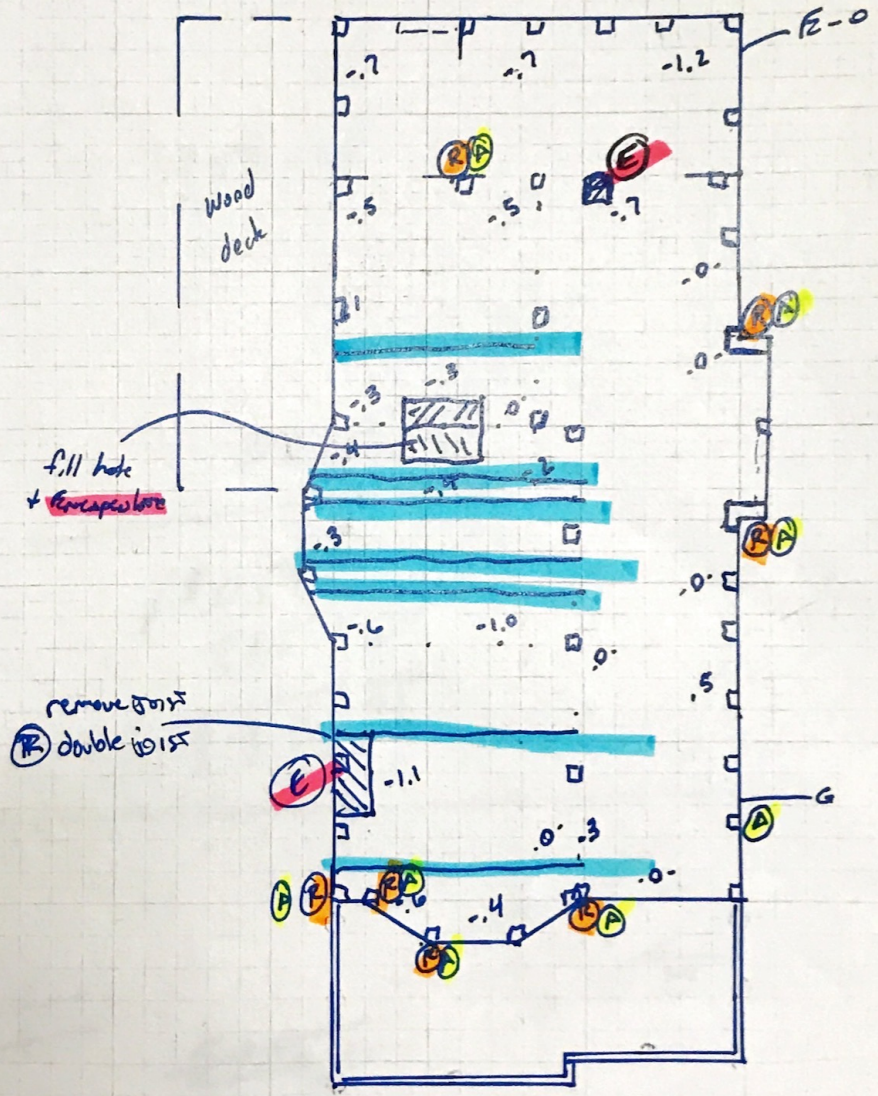 -.7
-.7
-1.2
R A
E
wood
deck
-.5
-.5
-.7
.0
R A
.0
-.3
-.3
.0
-.4
fill hole
R A
-.3
.0
-.6
-1.0
.0
.5
remove joist
R double joist
E
-1.1
G
A
.0
.3
.0
A R
R A
-.6
-.4
R A
R A